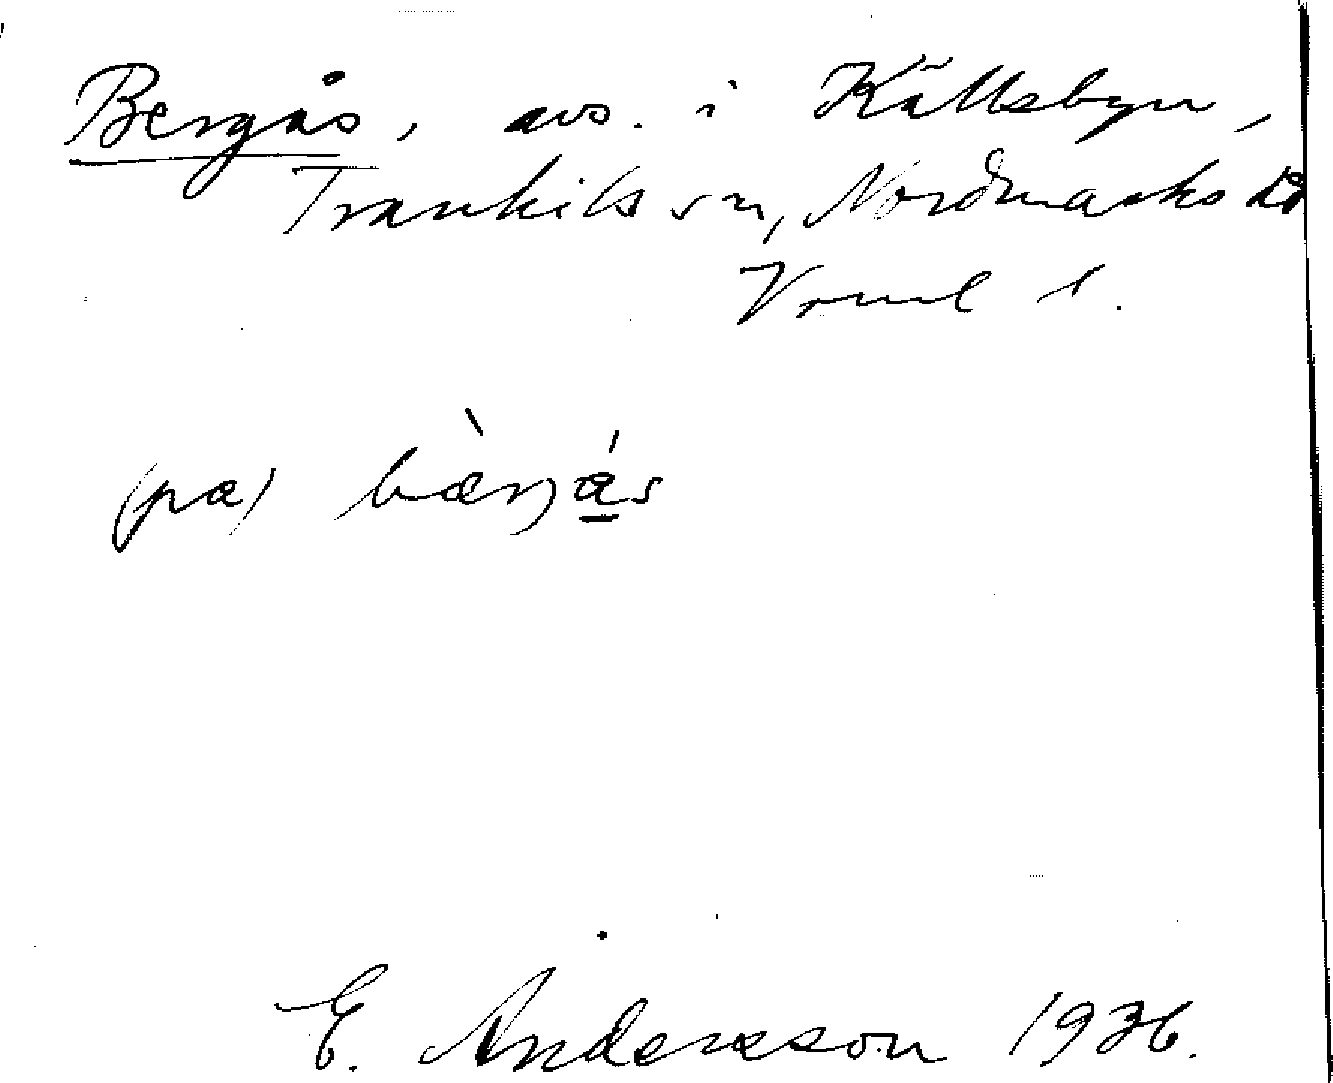 Bergås, avs. i Källsbyn,
Trankils sn, Nordmarks hd
Vrml l.
(pa)
E. Andersson 1936.